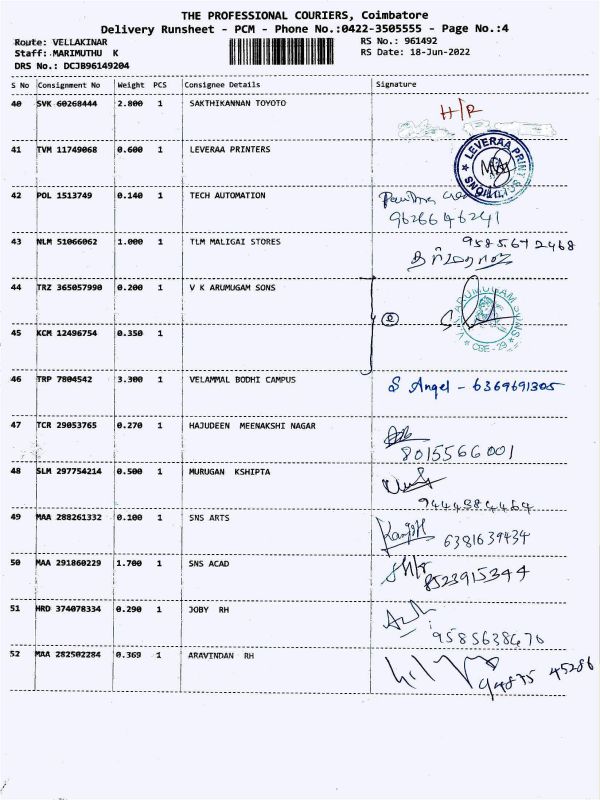 THE PROFESSIONAL COURIERS, Coimbatore
Delivery Runsheet - PCM - Phone No.:0422-3505555 - Page No.:4
Route: VELLAKINAR RS No.: 961492
Staff: MARIMUTHU K RS Date: 18-Jun-2022
DRS No.: DCJB96149204
S No Consignment No Weight PCS Consignee Details Signature
40 SVK 60268444 2.800 1 SAKTHIKANNAN TOYOTO H/R
41 TVM 11749068 0.600 1 LEVERAA PRINTERS LEVERAA PRINT
42 POL 1513749 0.140 1 TECH AUTOMATION
9626646241
43 NLM 51066062 1.000 1 TLM MALIGAI STORES 9585672468
44 TRZ 365057990 0.200 1 V K ARUMUGAM SONS
V.K. ARUMUGAM SONS CBE-29
45 KCM 12496754 0.350 1
46 TRP 7804542 3.300 1 VELAMMAL BODHI CAMPUS S Angel - 6369691305
47 TCR 29053765 0.270 1 HAJUDEEN MEENAKSHI NAGAR
8015566001
48 SLM 297754214 0.500 1 MURUGAN KSHIPTA
49 MAA 288261332 0.100 1 SNS ARTS
6381639434
50 MAA 291860229 1.700 1 SNS ACAD
8523915344
51 HRD 374078334 0.290 1 JOBY RH
9585638470
52 MAA 282502284 0.369 1 ARAVINDAN RH
94875 45286